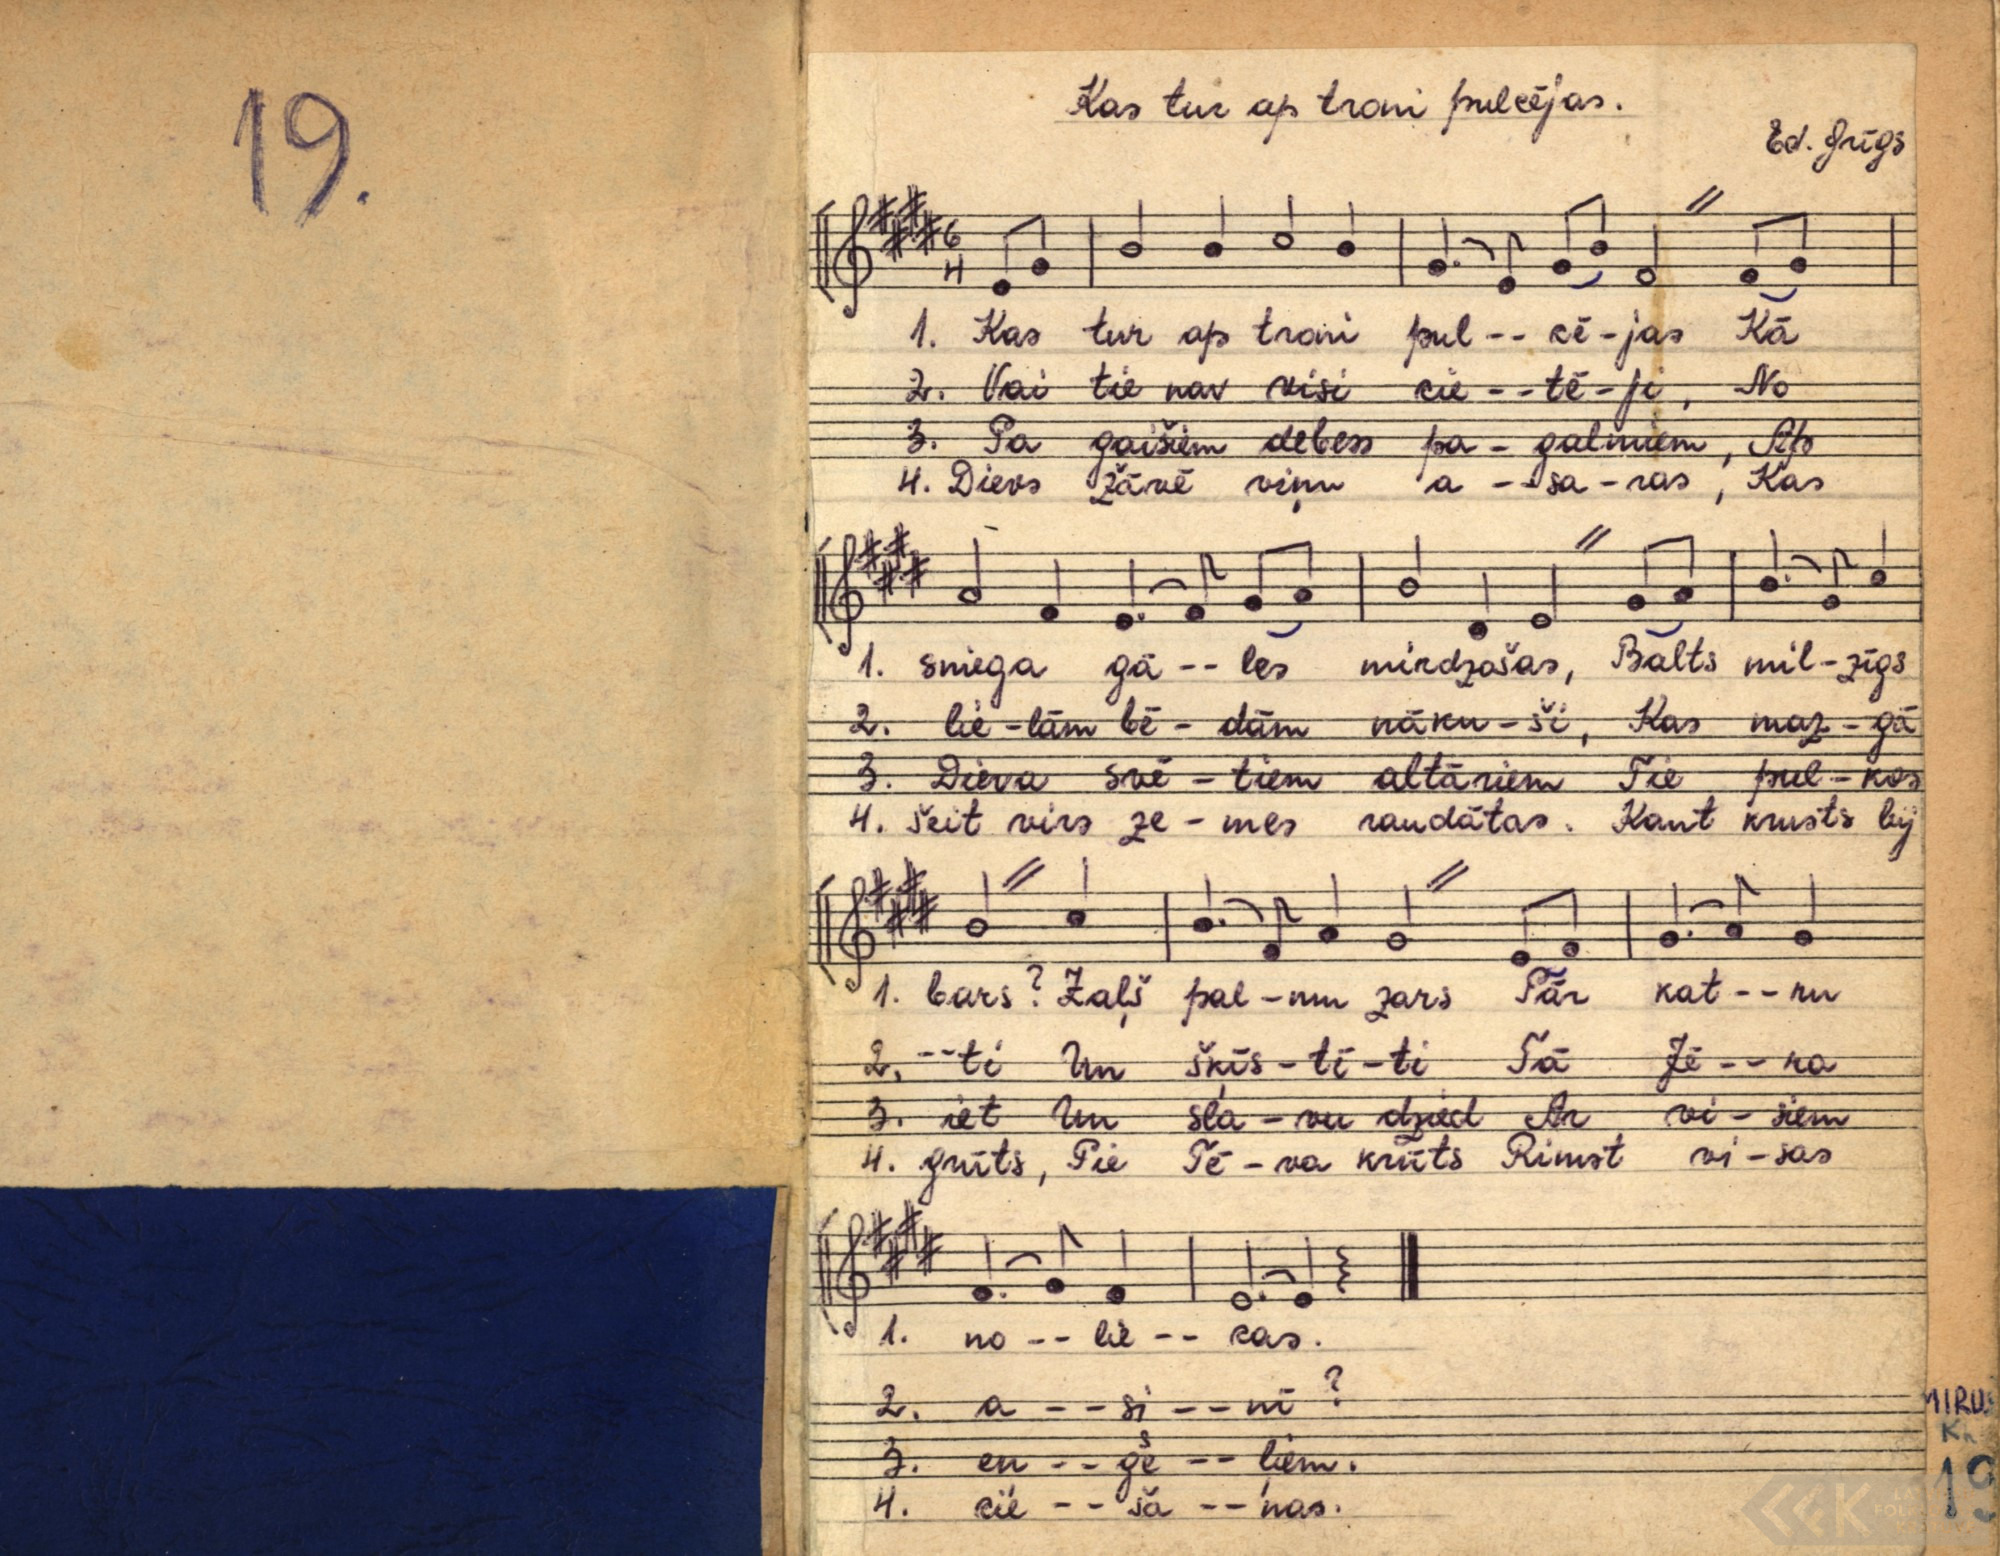 19.
Kas tur ap troni pulcējas.
Ed. Grīgs
6
4
1. Kas tur ap troni pul -- cē - jas Kā
2. Vai tie nav visi cie -- tē - ji, No
3. Pa gaišiem debess pa - galmiem, Ap
4. Dievs žāvē viņu a -- sa - ras, Kas
1. sniega gā -- les mirdzošas, Balts mil - zīgs
2. lie - lām bē - dām nāku - ši, Kas maz - gā
3. Dieva svē - tiem altāriem Tie pul - kos
4. šeit virs ze - mes raudātas. Kaut krusts bij
1. bars? Zaļš pal - mu zars Pār kat -- ru
2. -- ti Un šķīs - tī - ti Tā Jē -- ra
3. iet Un sla - vu dzied Ar vi - siem
4. grūts, Pie Tē - va krūts Rimst vi - sas
1. no -- lie -- cas.
2. a -- si -- nī?
3. en -- ģe -- ļiem.
4. cie -- ša -- nas.
MIRU
Kn
19